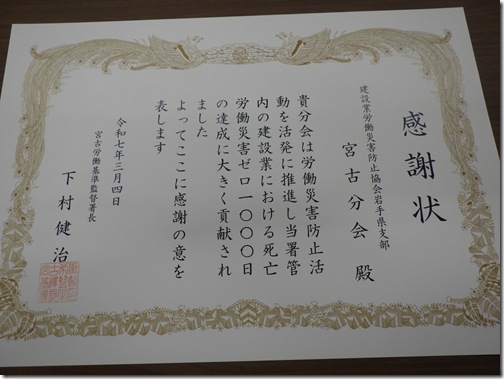 感謝状
建設業労働災害防止協会岩手県支部
宮古分会殿
貴分会は労働災害防止活
動を活発に推進し当署管
内の建設業における死亡
労働災害ゼロ一〇〇〇日
の達成に大きく貢献され
ました
よってここに感謝の意を
表します
令和七年三月四日
宮古労働基準監督署長
下村健治